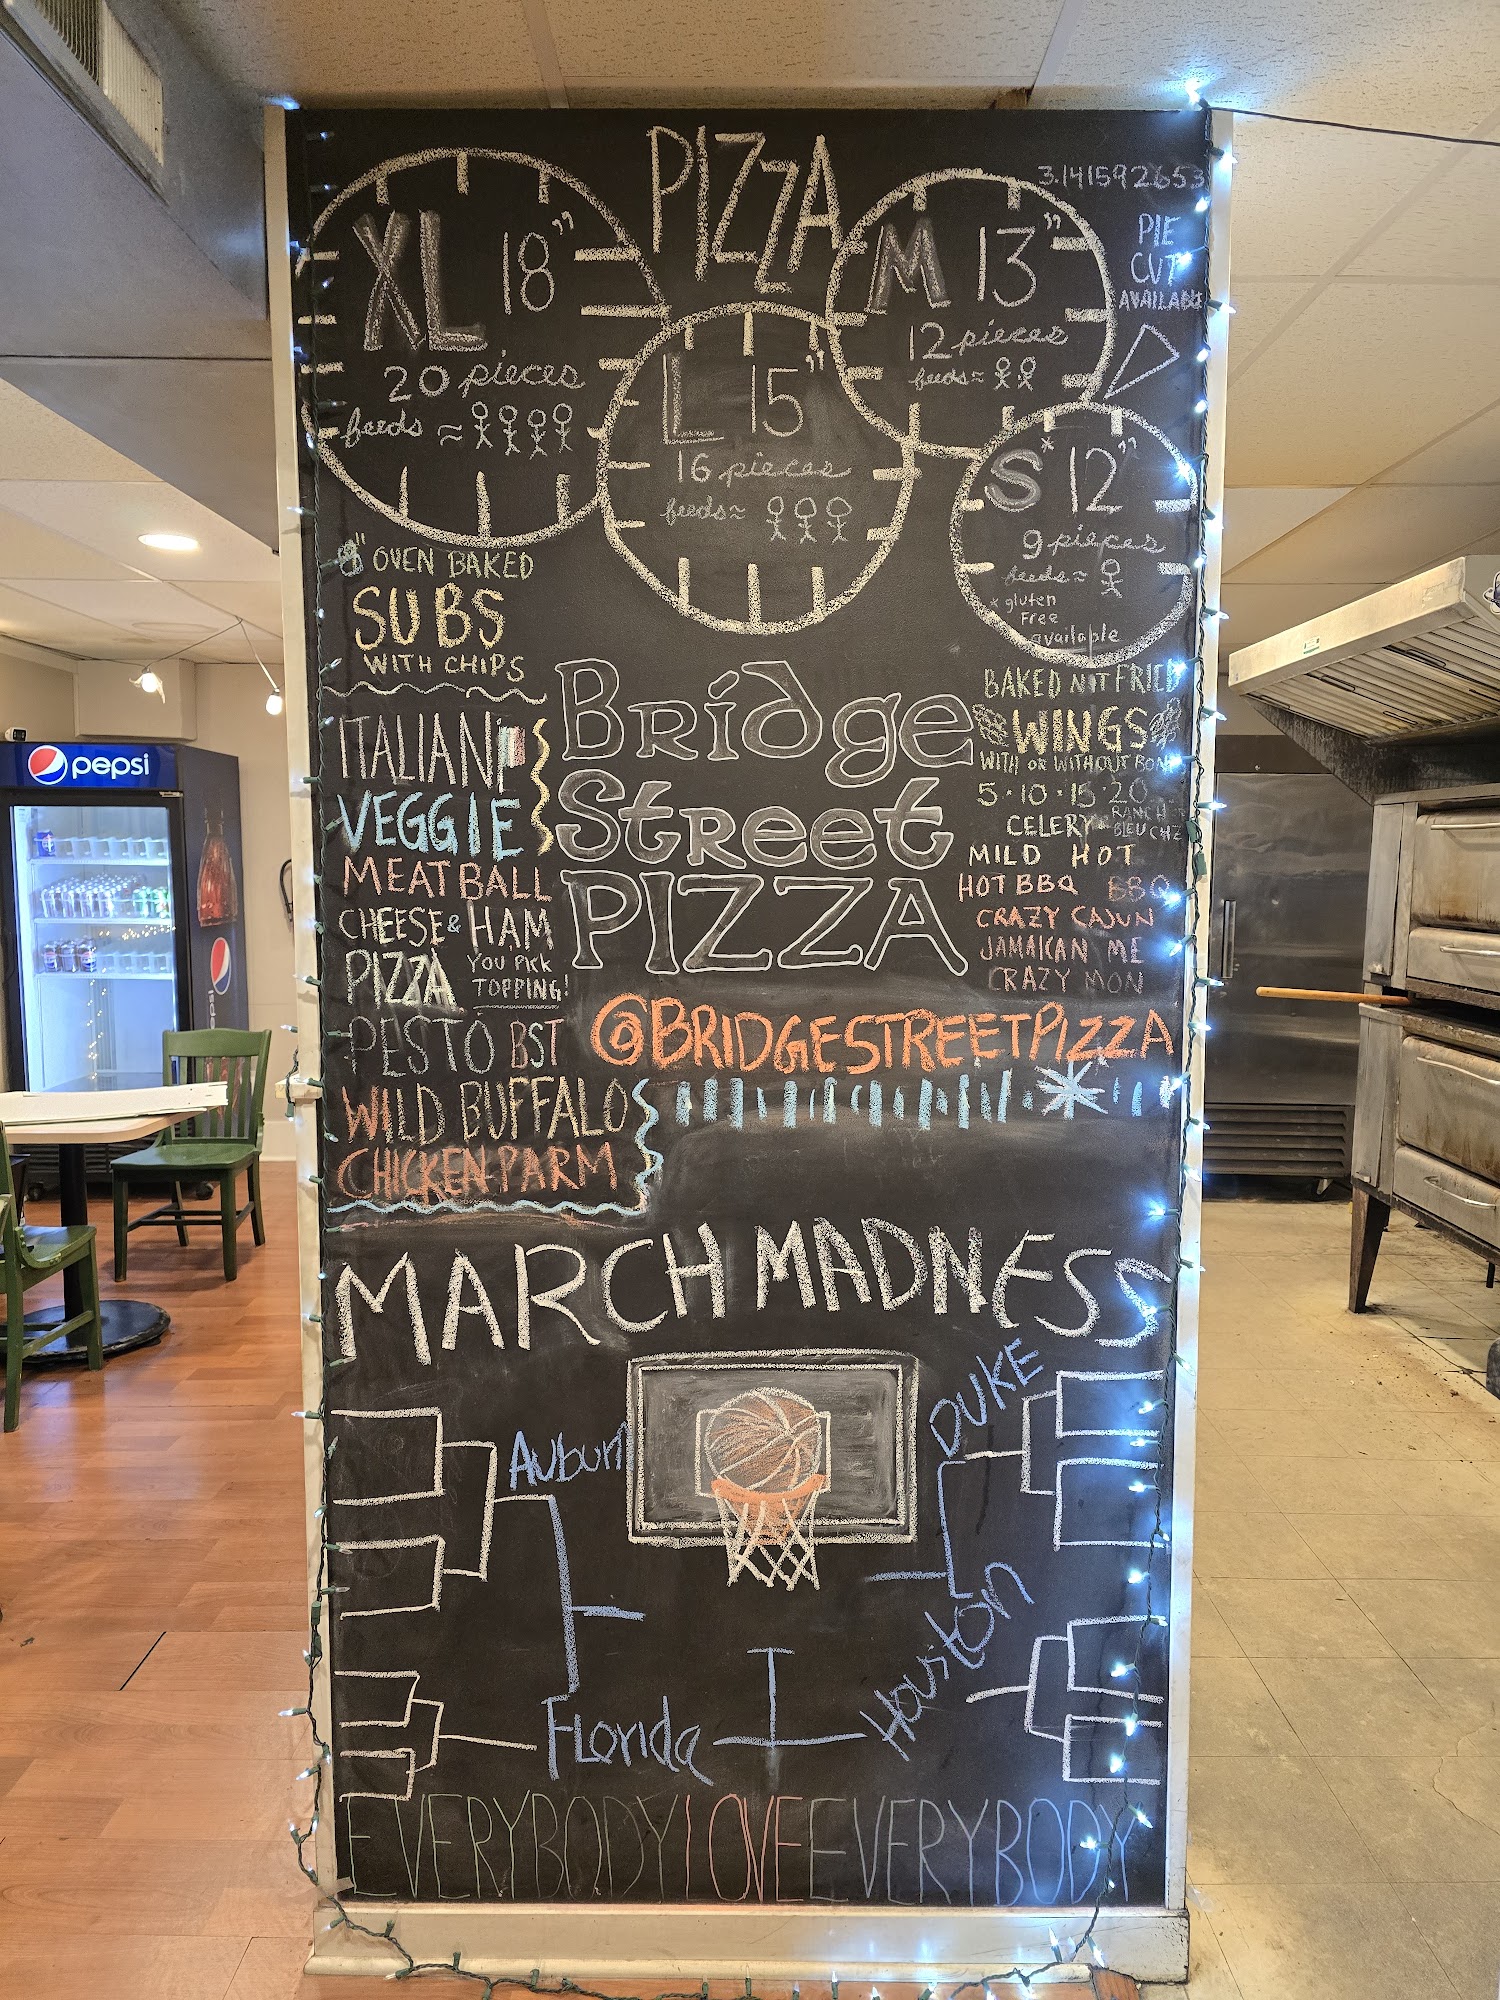 PIZZA
XL 18"
20 pieces
feeds ≈
L 15"
16 pieces
feeds ≈
M 13"
12 pieces
feeds ≈
3.141592653
PIE
CUT
AVAILABLE
S* 12"
9 pieces
feeds ≈
* gluten
Free
available
8" OVEN BAKED
SUBS
WITH CHIPS
ITALIAN
VEGGIE
MEATBALL
CHEESE & HAM
PIZZA YOU PICK
TOPPING!
PESTO BST
WILD BUFFALO
CHICKEN PARM
Bridge
Street
PIZZA
@BRIDGESTREETPIZZA
BAKED NOT FRIED
WINGS
WITH OR WITHOUT BONE
5·10·15·20
CELERY RANCH
BLEU CHZ
MILD HOT
HOT BBQ BBQ
CRAZY CAJUN
JAMAICAN ME
CRAZY MON
MARCH MADNESS
Auburn
DUKE
Florida
Houston
EVERYBODY LOVE EVERYBODY
pepsi
pepsi